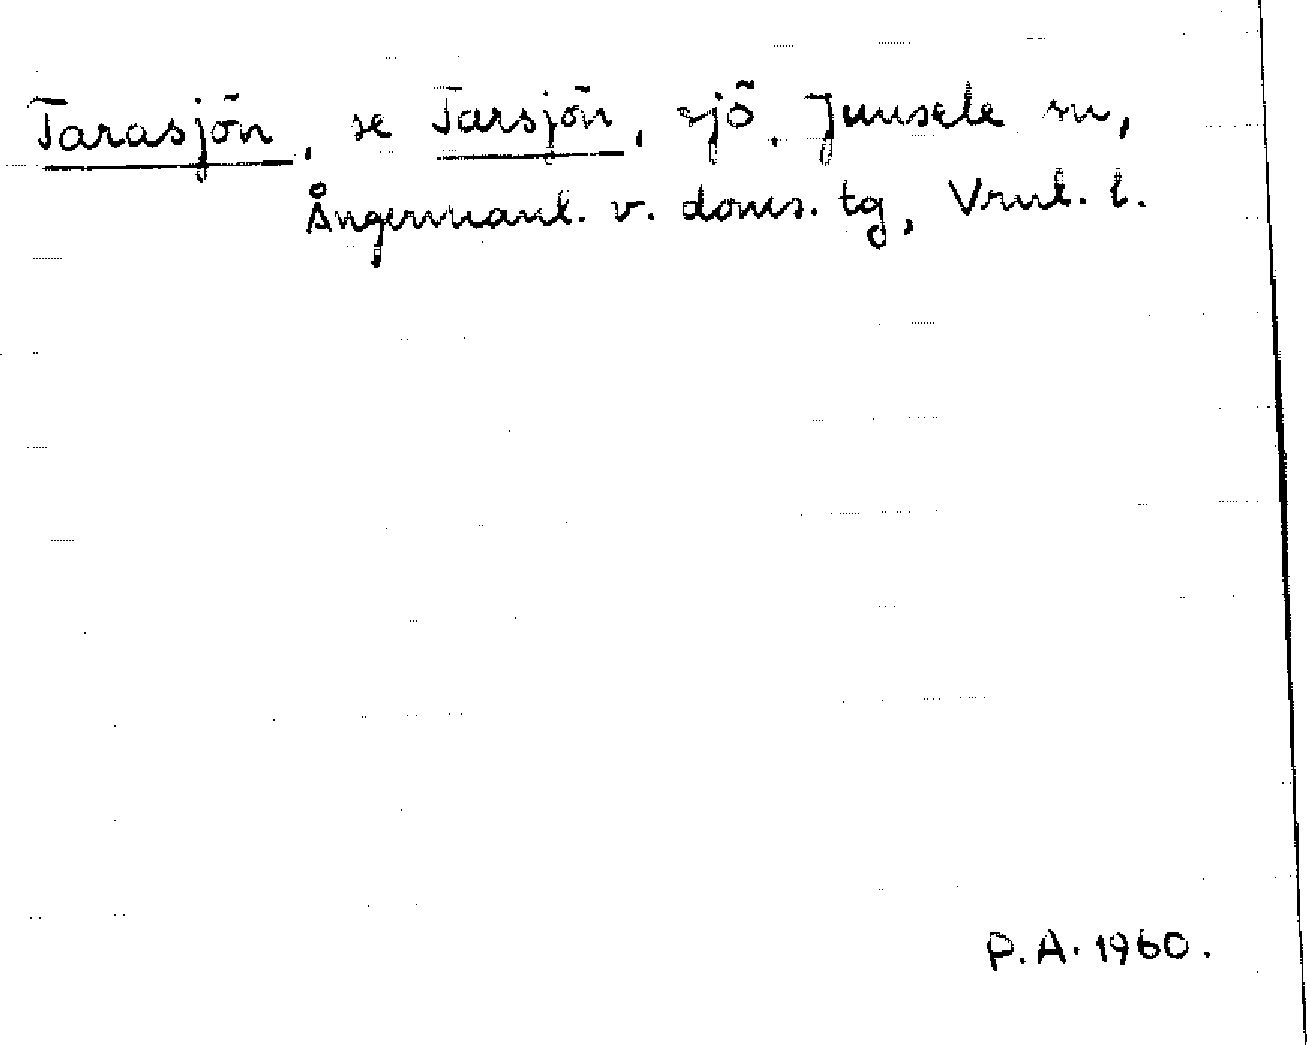 Tarasjön, se Tarsjön, sjö, Junsele sn,
Ångermanl. v. doms. tg, Vrnl. l.
P.A. 1960.